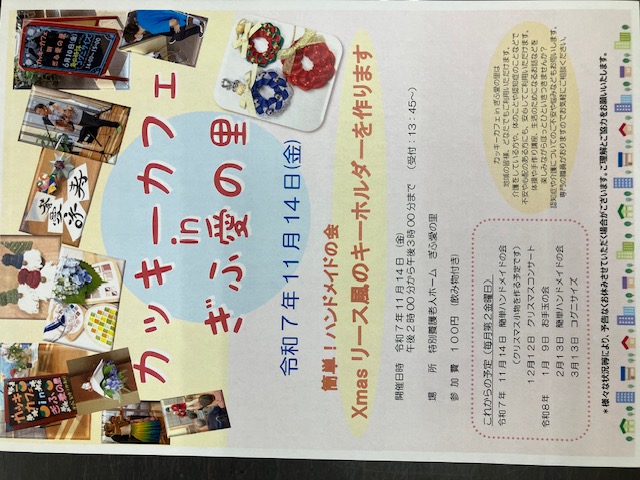 カッキーカフェ
in
ぎふ愛の里
令和7年11月14日(金)
簡単!ハンドメイドの会
Xmasリース風のキーホルダーを作ります
開催日時 令和7年11月14日(金)
午後2時00分から午後3時00分まで (受付:13:45~)
場所 特別養護老人ホーム ぎふ愛の里
参加費 100円(飲み物付き)
カッキーカフェinぎふ愛の里は
地域の皆様、どなたでもご利用いただけます。
介護をしている方や、体のことや認知症のことなどで
不安や心配のある方にも、安心してご利用いただけます。
体操や手作り講座、生活のためになるお話などを
楽しみながらほっとひといきつきませんか?
認知症や介護についてのご不安や悩みなどもお伺いします。
専門の職員がおりますのでお気軽にご相談ください。
これからの予定(毎月第2金曜日)
令和7年 11月14日 簡単ハンドメイドの会
(クリスマス小物を作る予定です)
12月12日 クリスマスコンサート
令和8年 1月 9日 お手玉の会
2月13日 簡単ハンドメイドの会
3月13日 コグニサイズ
*様々な状況等により、予告なくお休みさせていただく場合がございます。ご理解とご協力をお願いいたします。